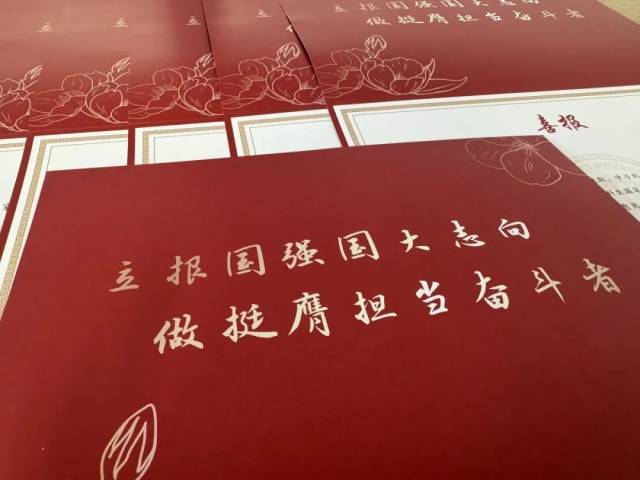 立报国强国大志向
做挺膺担当奋斗者
立
立
立
立报国强国大志向
做挺膺担当奋斗者
喜报